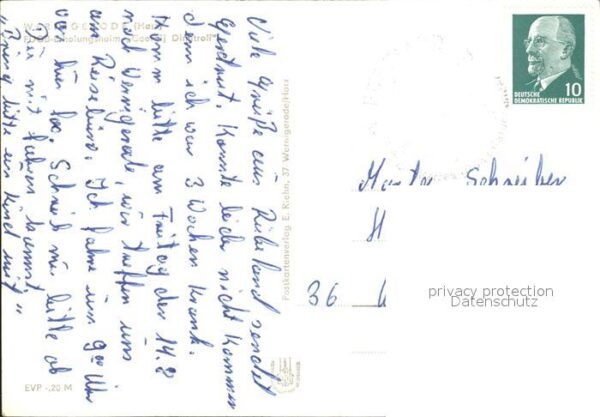 WERNIGERODE (Harz)
FDGB-Erholungsheim "Georgi Dimitroff"
Viele Grüße aus Rübeland sendet
Gertraut. Konnte leider nicht kommen
denn ich war 3 Wochen krank.
Komm bitte am Freitag den 14.8
nach Wernigerode, wir treffen uns
am Reisebüro. Ich fahre um 9⁰⁰ Uhr
von hier los. Schreib mir bitte ob
Du mit fahren kannst
"Bring bitte ein Kind mit"
EVP -,20 M
Postkartenverlag E. Riehn, 37 Wernigerode/Harz
10
DEUTSCHE
DEMOKRATISCHE REPUBLIK
Schreiber
H
36
privacy protection
Datenschutz